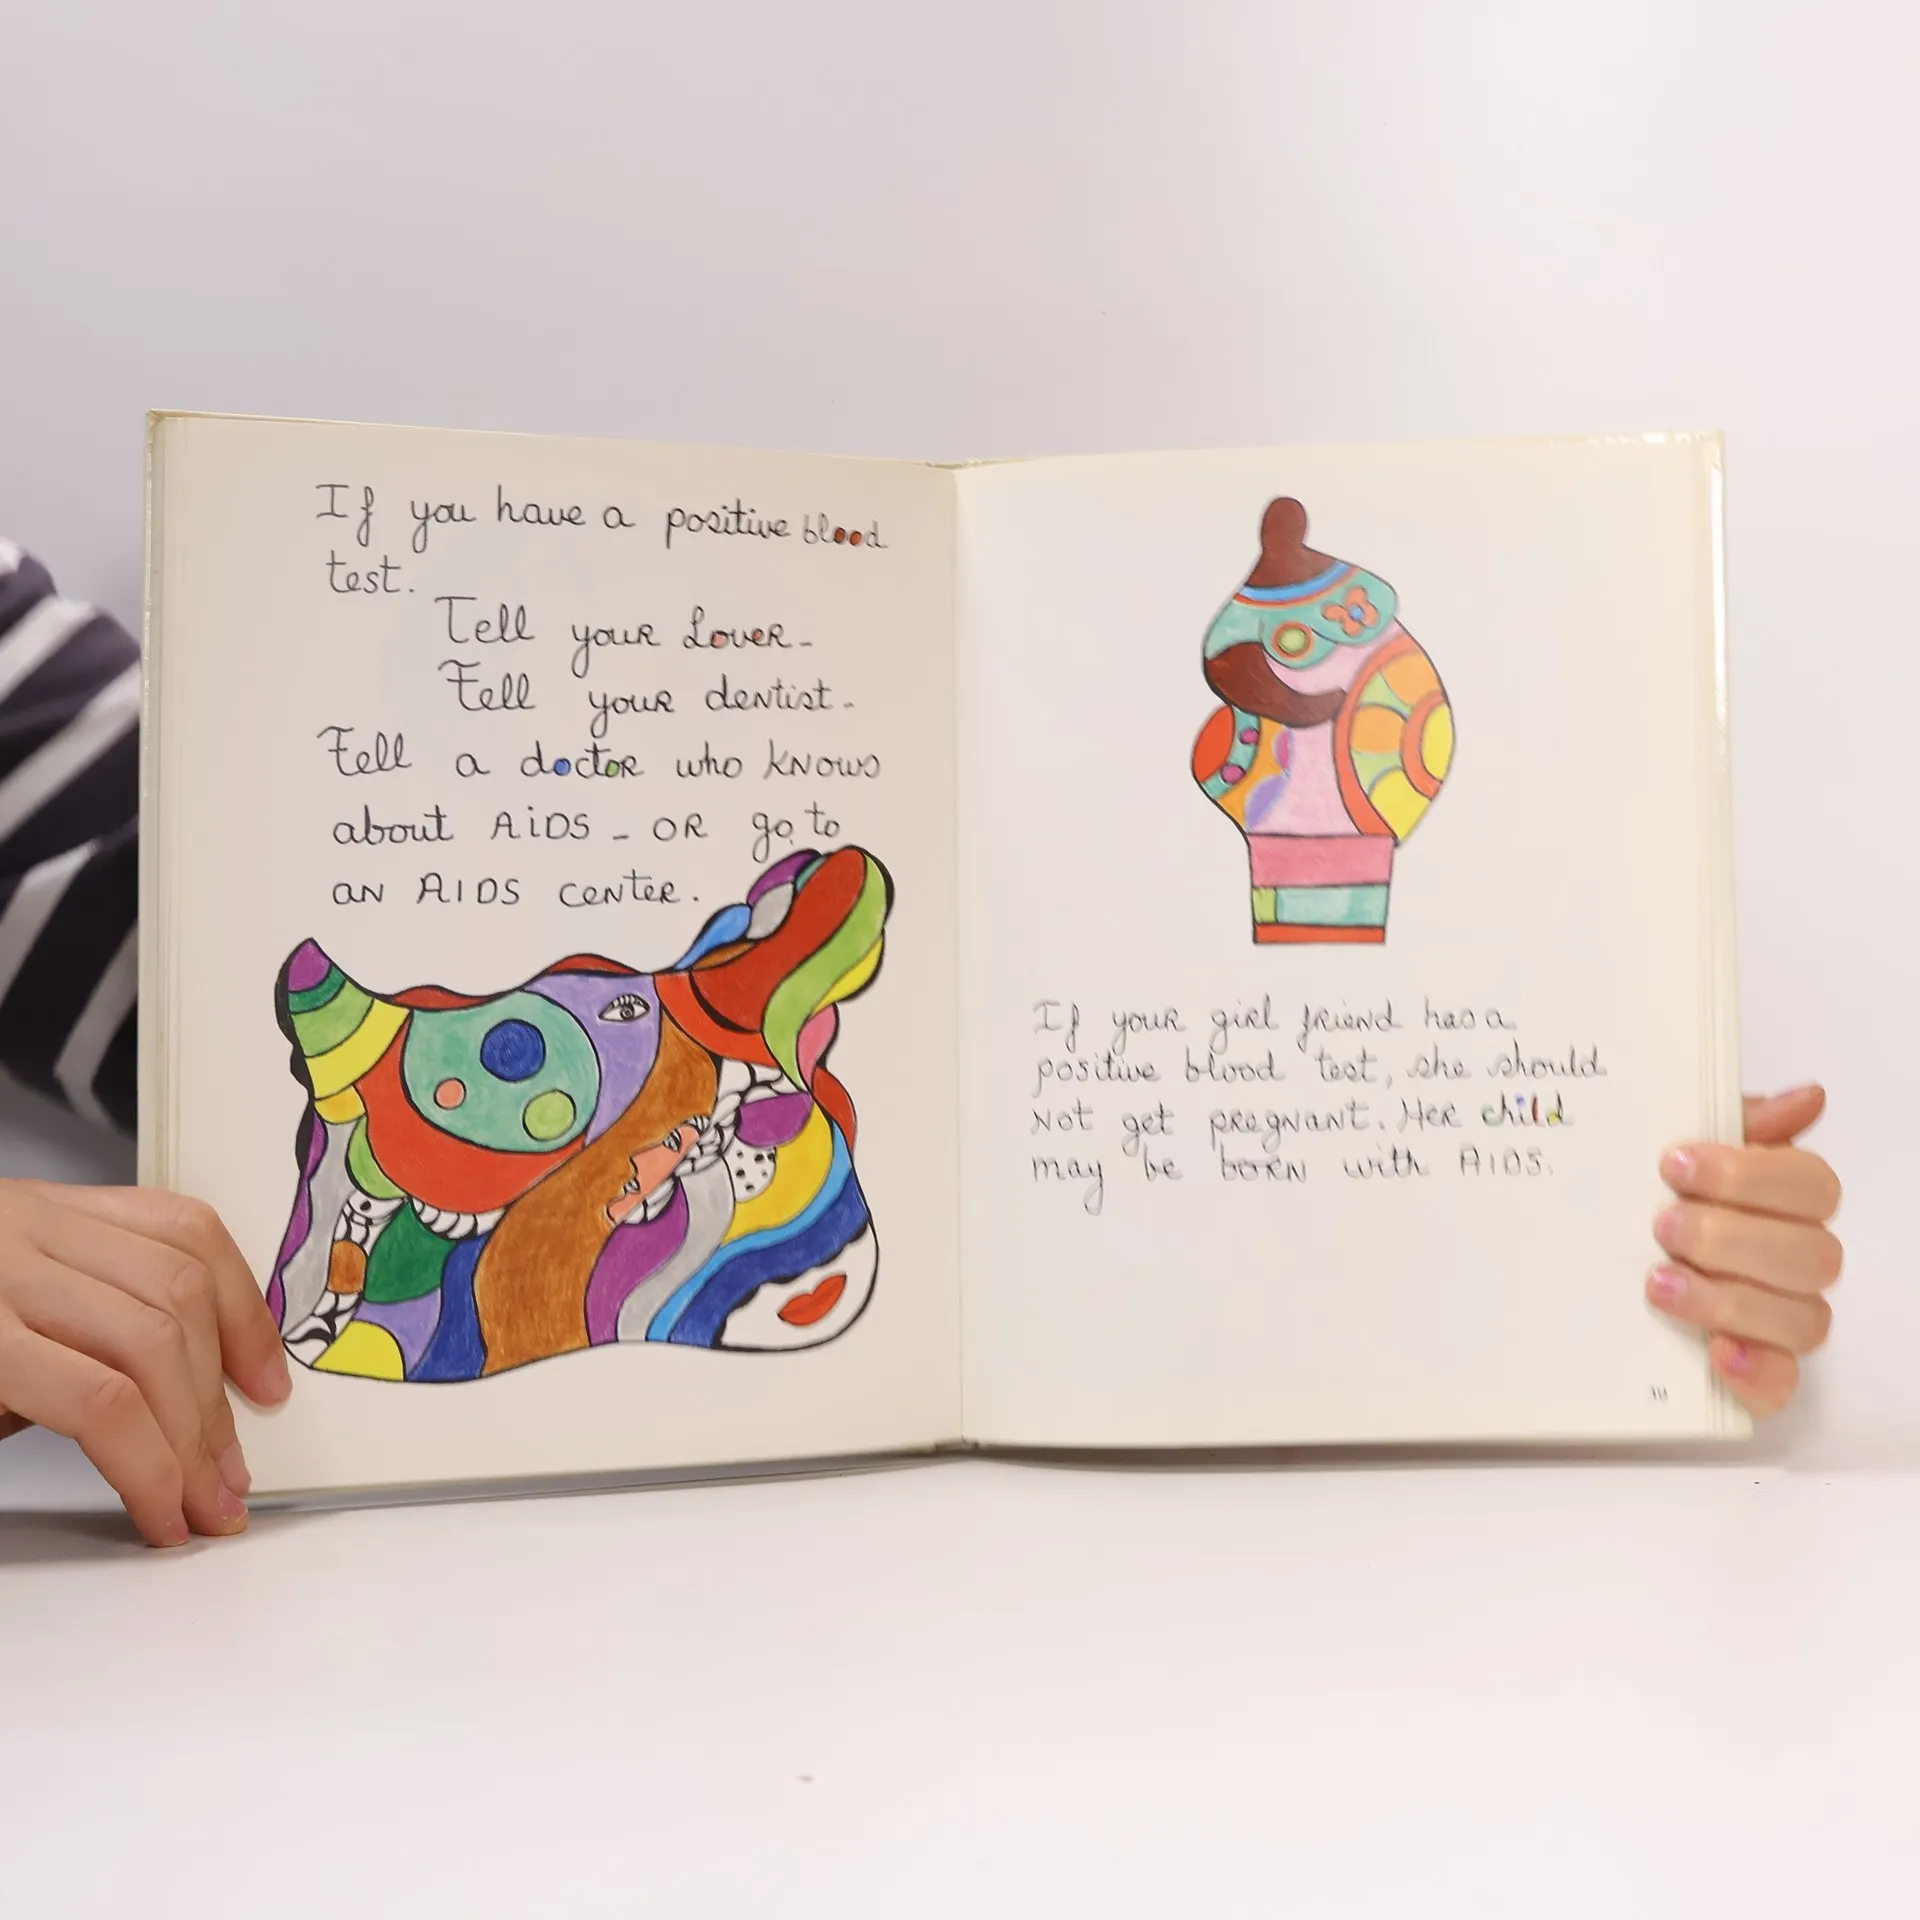 If you have a positive blood
test.
Tell your Lover-
Tell your dentist-
Tell a doctor who knows
about AIDS - OR go to
an AIDS center.
If your girl friend has a
positive blood test, she should
Not get pregnant. Her child
may be born with AIDS.